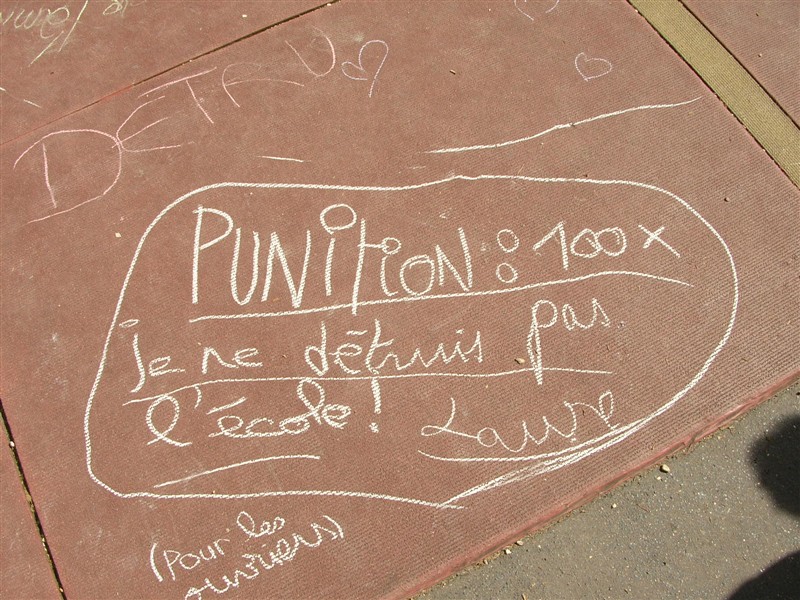 DÉTRU
PUNITION : 100 x
je ne détruis pas
l'école!
Laure
(Pour les
ouvriers)